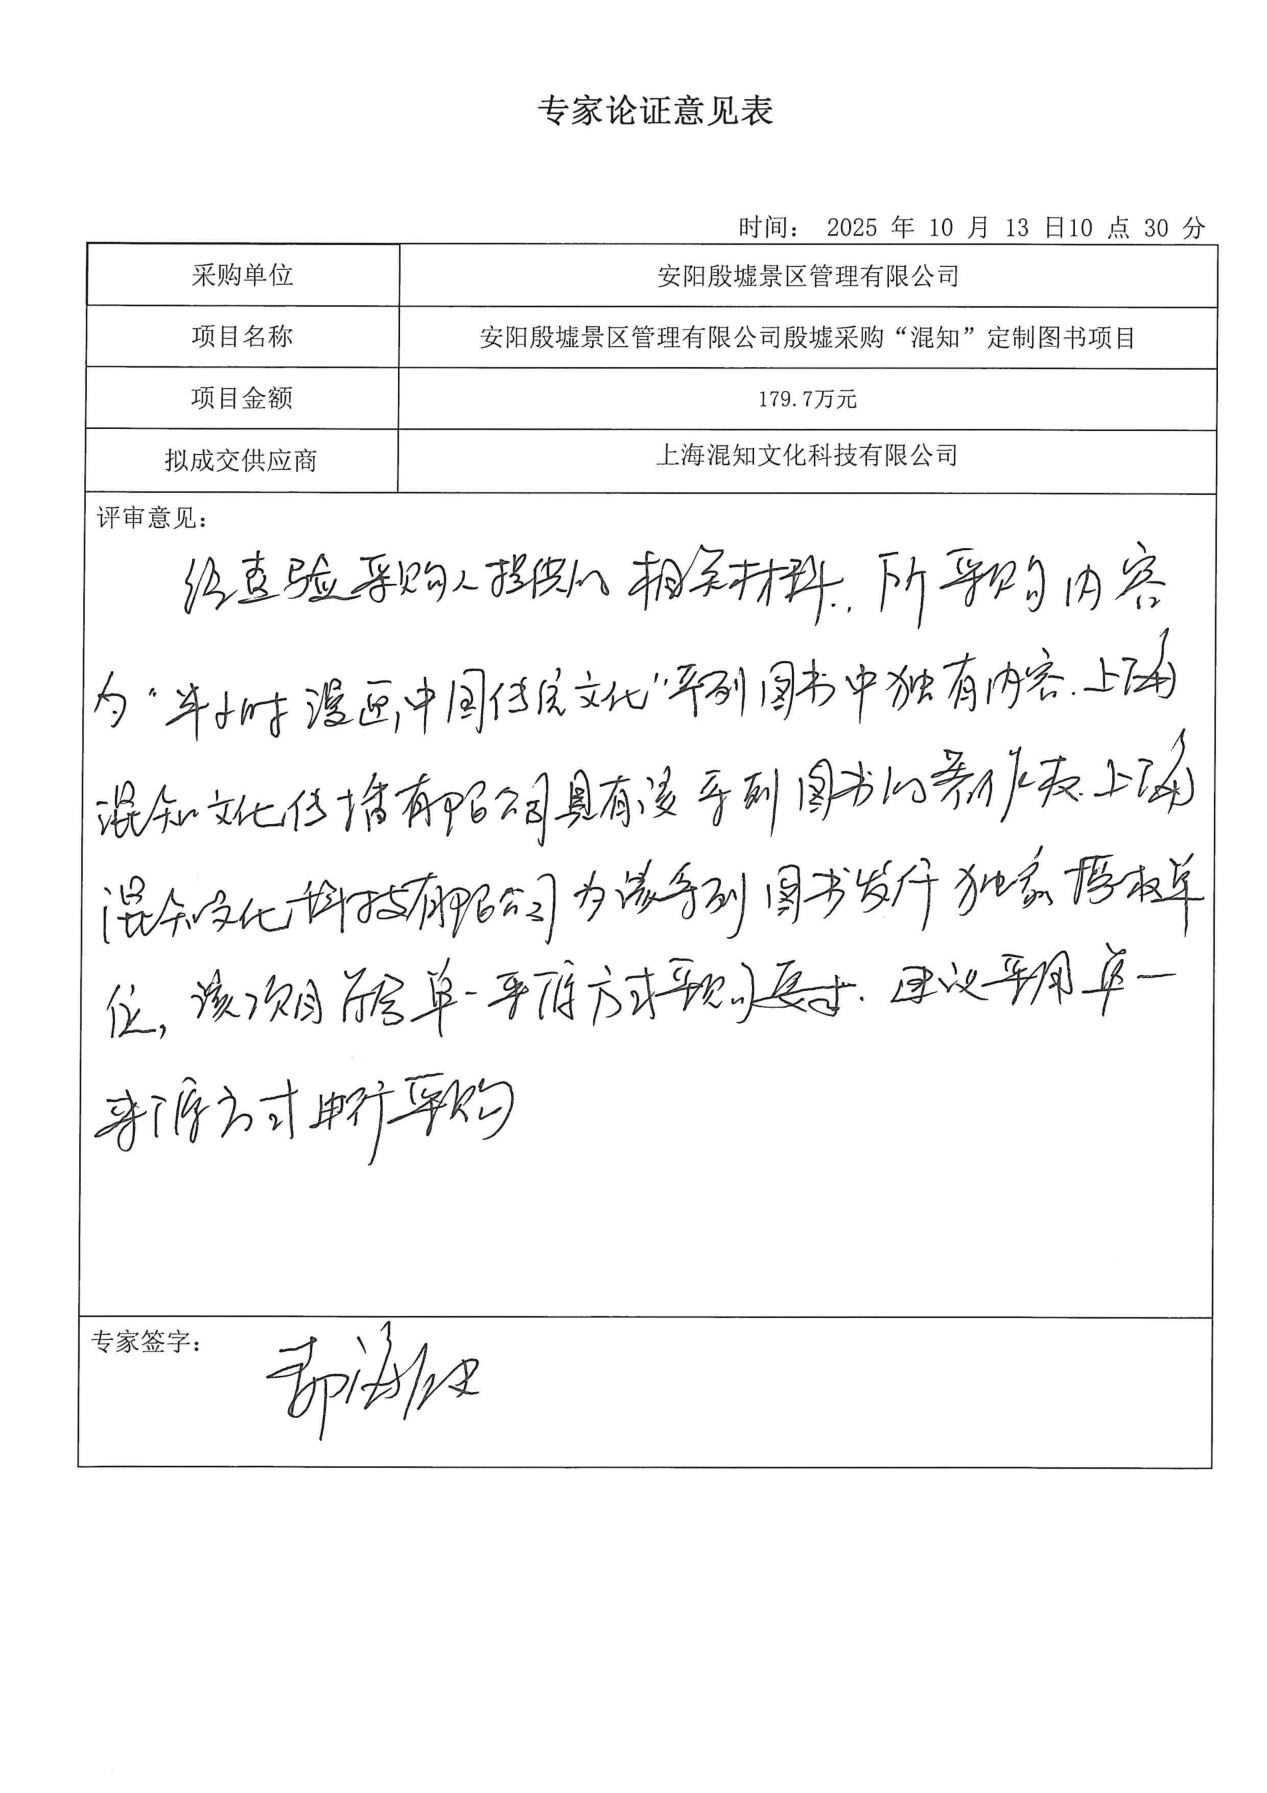 专家论证意见表
时间： 2025 年 10 月 13 日10 点 30 分
采购单位 安阳殷墟景区管理有限公司
项目名称 安阳殷墟景区管理有限公司殷墟采购“混知”定制图书项目
项目金额 179.7万元
拟成交供应商 上海混知文化科技有限公司
评审意见：
经查验采购人提供的相关材料，所采购内容
为“半小时漫画中国传统文化”系列图书中独有内容.上海
混知文化传播有限公司具有该系列图书的著作权.上海
混知文化科技有限公司为该系列图书发行独家授权单
位，该项目符合单一来源方式采购的要求.建议采用单一
来源方式进行采购
专家签字：